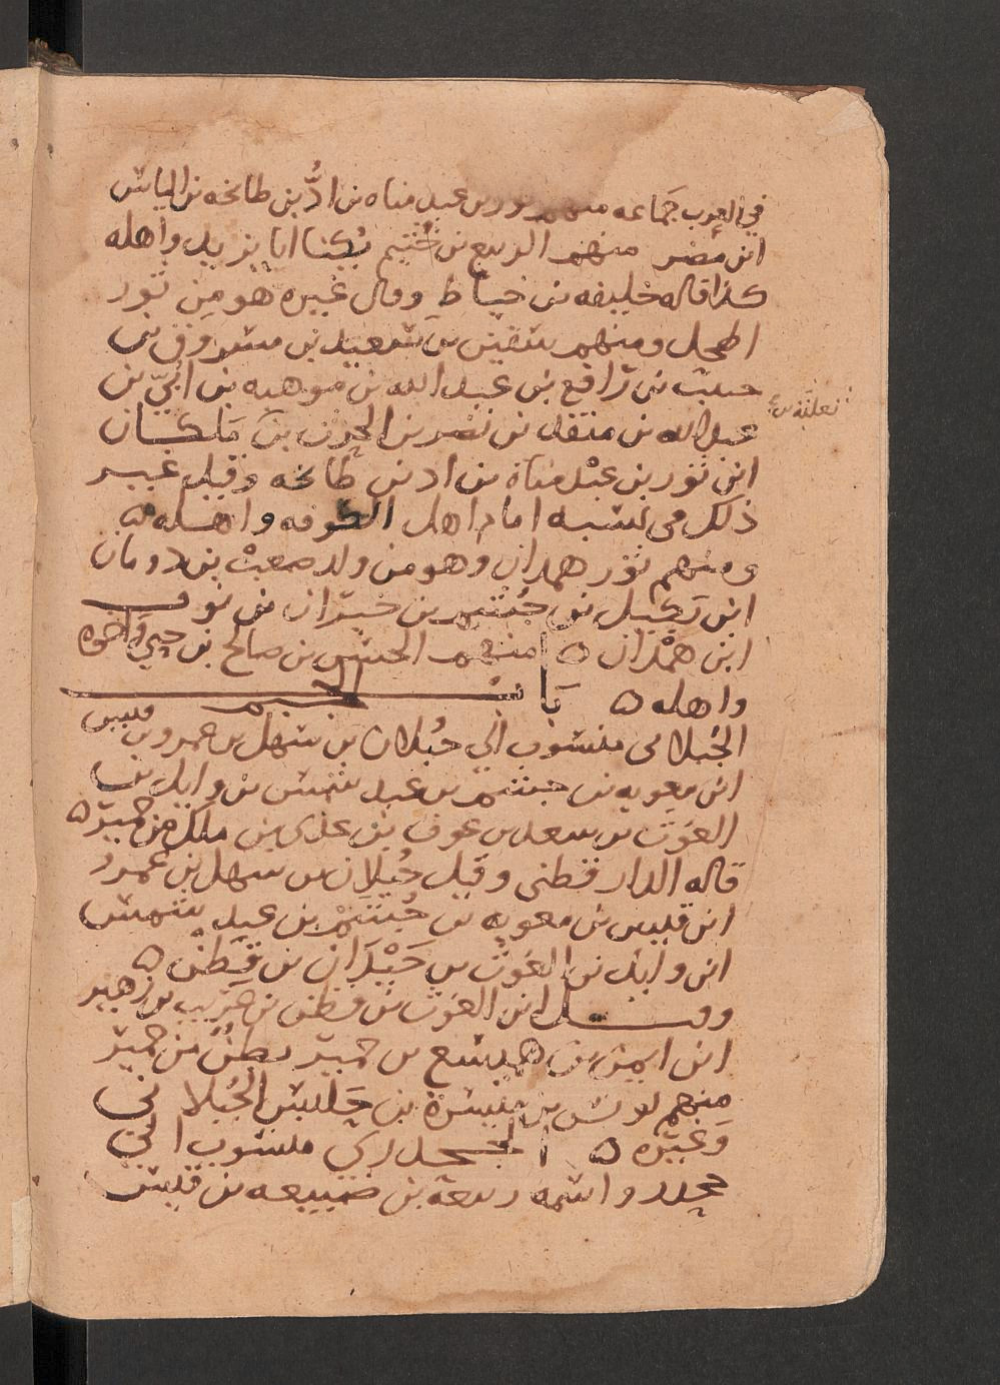 في العرب جماعه منهم ثور بن عبد مناه بن ادُّ بن طابخه بن الياس
ابن مضر منهم الربيع بن خُثيم يُكنا ابا يزيد واهله
كذا قاله خليفه بن خياط وقال غيره هو من ثور
اطحل ومنهم سفين بن سعيد بن مسروق بن
حبيب بن رافع بن عبد الله بن موهبه بن ابيّ بن
عبد الله بن منقذ بن نصر بن الحرث بن ملكان
ثعلبه بن
ابن ثور بن عبد مناة بن اد بن طابخه وقيل غير
ذلك في نسبه امام اهل الكوفه واهله ه
ومنهم ثور همدان وهو من ولد صعب بن دومان
ابن بكيل بن جُشم بن خيران بن نوف
ابن همْدان ه منهم الحسن بن صالح بن حيّ واخوه
واهله ه باب الجيم
الجُبلاني منسوب الي جُبلان بن سهل بن عمرو بن قيس
ابن معويه بن جشم بن عبد شمس بن وايل بن
الغوث بن سعد بن عوف بن عدي بن ملك من حمير ه
قاله الدارقطني وقيل جُبلان بن سهل بن عمرو
ابن قيس بن معويه بن جُشَمْ بن عبد شمس
ابن وايل بن الغوث بن حَيْدَان بن قَطن ه
وقيل ابن الغوث بن قطن بن عَرِيب بن زهير
ابن ايمن بن هميسع بن حمير بطنٌ من حمير
منهم يونس بن ميسرة بن حَلبس الجُبلاني
وغيره ه الجحدري منسوب الي
جحدر واسمه ربيعة بن ضبيعه بن قيس